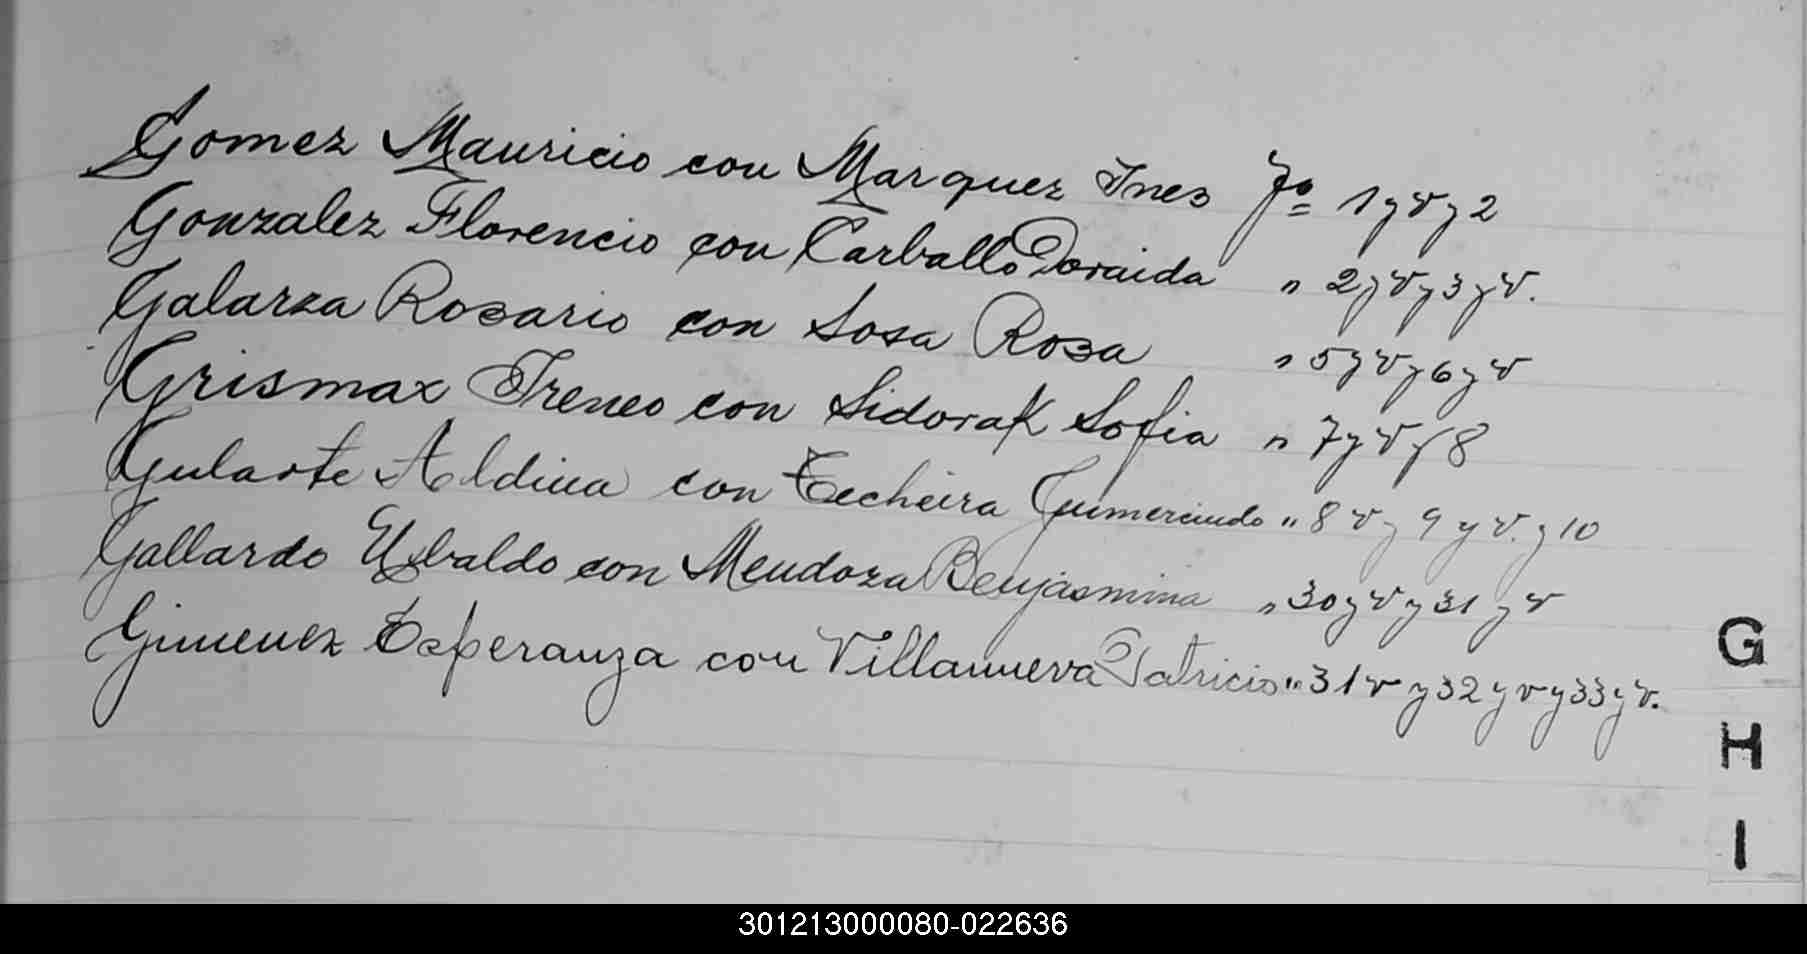 Gomez Mauricio con Marquez Ines Fº 1 y v y 2
Gonzalez Florencio con Carballo Doraida " 2 y v y 3 y v.
Galarza Rosario con Sosa Rosa " 5 y v y 6 y v
Grismax Ireneo con Sidorak Sofia " 7 y v y 8
Gularte Aldina con Techeira Gumercindo " 8 v y 9 y v. y 10
Gallardo Ubaldo con Mendoza Benjasmina " 30 y v y 31 y v
Gimenez Esperanza con Villanueva Patricio " 31 v y 32 y v y 33 y v.
G
H
I
301213000080-022636